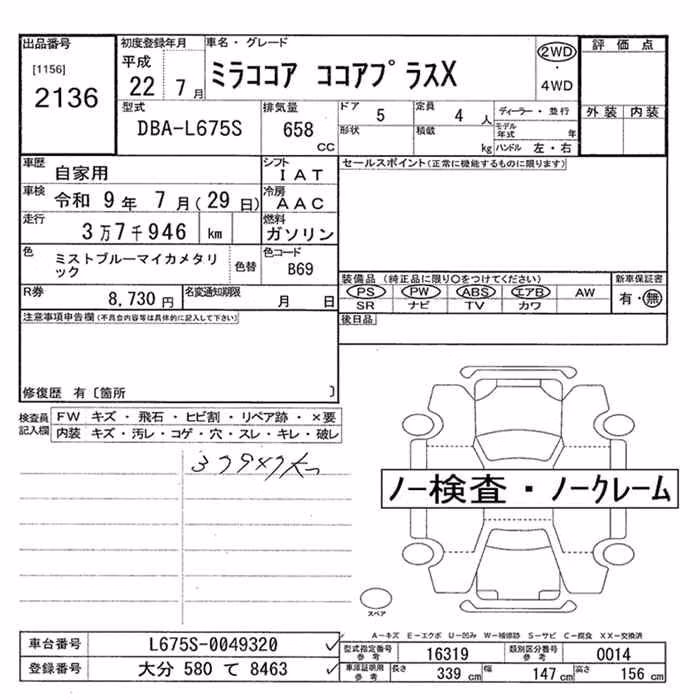 出品番号 初度登録年月 車名・グレード 評価点
[1156] 平成 ミラココア ココアプラスX 2WD
2136 22 7月 ・ 4WD
型式 排気量 ドア 5 定員 4人 ディーラー・並行 外装 内装
DBA-L675S 658 CC 形状 積載 kg モデル年式 年
ハンドル 左・右
車歴 自家用 シフト IAT セールスポイント(正常に機能するものに限ります)
車検 令和 9年 7月(29日) 冷房 AAC
走行 3万7千946 km 燃料 ガソリン
色 ミストブルーマイカメタリック 色替 色コード B69
装備品(純正品に限り○をつけてください) 新車保証書
PS PW ABS エアB AW 有・無
SR ナビ TV カワ
R券 8,730円 名変通知期限 月 日
後日品
注意事項申告欄(不具合内容等は具体的に記入して下さい)
修復歴 有〔箇所 〕
検査員記入欄 FW キズ・飛石・ヒビ割・リペア跡・×要
内装 キズ・汚レ・コゲ・穴・スレ・キレ・破レ
ノー検査・ノークレーム
スペア
A-キズ E-エクボ U-凹み W-補修跡 S-サビ C-腐食 XX-交換済
車台番号 L675S-0049320 ✓
登録番号 大分 580 て 8463 ✓
型式指定番号 参考 16319 類別区分番号 参考 0014
車庫証明用 参考 長さ 339cm 幅 147cm 高さ 156cm